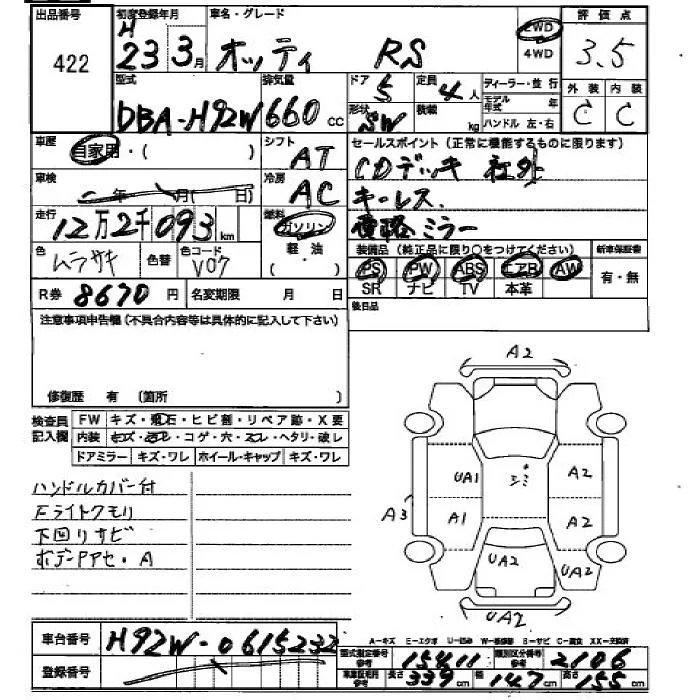 出品番号 422
初度登録年月 H 23 3月
車名・グレード オッティ RS
2WD
4WD
評価点 3.5
型式 DBA-H92W
排気量 660 cc
ドア 5
定員 4人
形状 SW
積載 kg
ディーラー・並行
モデル年式 年
ハンドル 左・右
外装 C
内装 C
車歴 自家用・( )
シフト AT
セールスポイント(正常に機能するものに限ります)
CDデッキ 社外
キーレス.
電格ミラー
車検 年 月( 日)
冷房 AC
走行 12万2千093km
燃料 ガソリン 軽油 ・( )
色 ムラサキ
色替
色コード V07
装備品(純正品に限り○をつけてください)
新車保証書 有・無
PS PW ABS エアB AW
SR ナビ TV 本革
R券 8670円
名変期限 月 日
後日品
注意事項申告欄(不具合内容等は具体的に記入して下さい)
修復歴 有(箇所 )
検査員記入欄
FW キズ・飛石・ヒビ割・リペア跡・X要
内装 キズ・ヨゴレ・コゲ・穴・スレ・ヘタリ・破レ
ドアミラー キズ・ワレ ホイール・キャップ キズ・ワレ
ハンドルカバー付
Fライトクモリ
下回りサビ
ボデーPPアセ・A
A2
UA1 シミ A2
A3 A1 A2
UA2 UA2
UA2
車台番号 H92W-0615232
登録番号
A-キズ E-エクボ U-凹み W-補修跡 S-サビ C-腐食 XX-交換済
型式指定番号 参考 15411
類別区分番号 参考 2106
車庫証明用 参考 長さ 339cm 幅 147cm 高さ 155cm